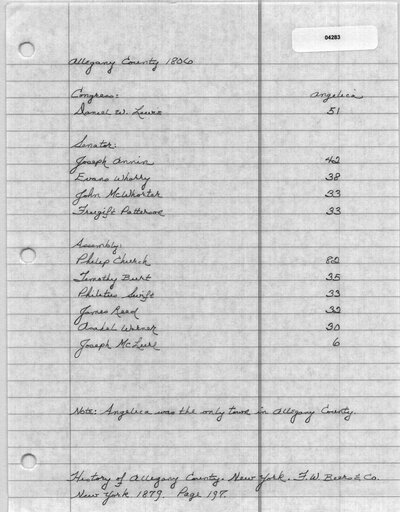 04283
Allegany County 1806
Congress: Angelica
Daniel W. Lewis 51
Senator:
Joseph Annin 42
Evans Wharry 38
John McWhorter 33
Freegift Patterson 33
Assembly:
Philip Church 82
Timothy Burt 35
Philetus Swift 33
James Reed 32
Asahel Warner 30
Joseph McLure 6
Note: Angelica was the only town in Allegany County.
History of Allegany County, New York. F.W. Beers & Co.
New York 1879. Page 197.